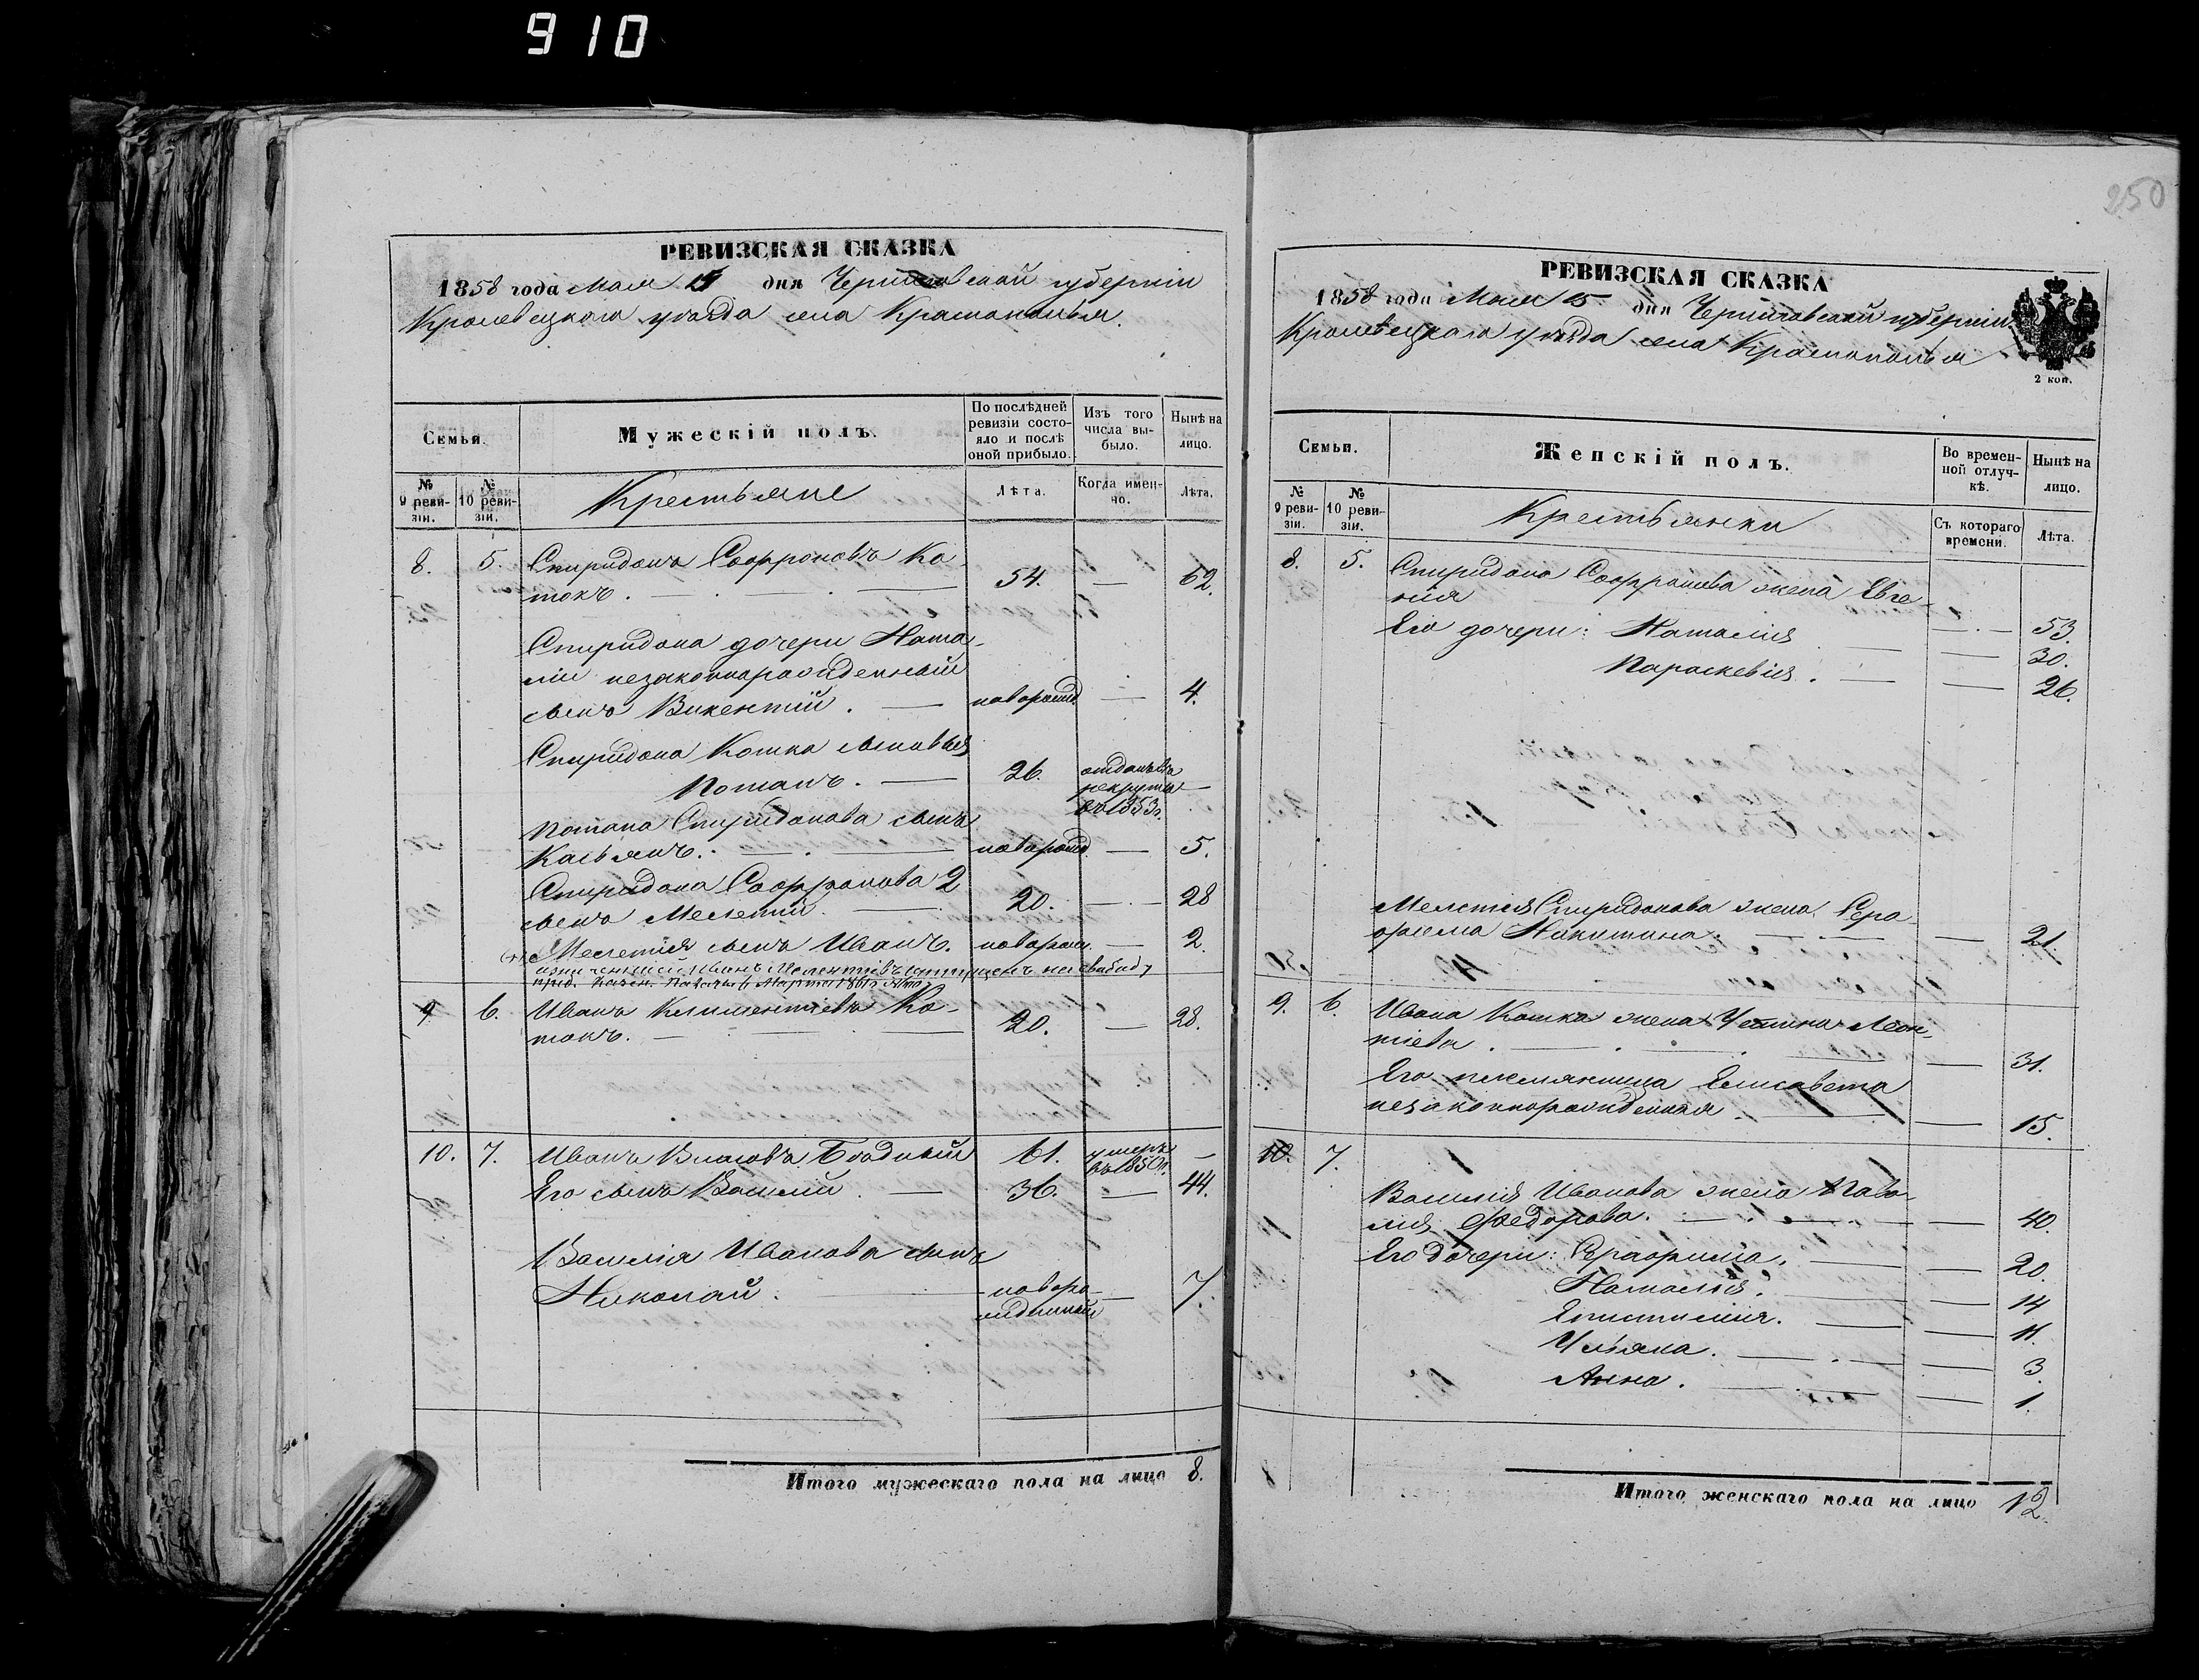 910
250
РЕВИЗСКАЯ СКАЗКА
1858 года Мая 15 дня Черниговской губернии
Кролевецкаго уѣзда села Краснополья.
Семьи.
Мужескій полъ.
По послѣдней ревизіи состояло и послѣ оной прибыло.
Изъ того числа выбыло.
Нынѣ на лицо.
№ 9 ревизіи.
№ 10 ревизіи.
Крестьяне
Лѣта.
Когда именно.
Лѣта.
8. 5. Спиридонъ Софроновъ Ко-
токъ. 54. — 62.
Спиридона дочери Ната-
ліи незаконнорожденный
сынъ Викентій. — новорожд. — 4.
Спиридона Котка сыновья
Потапъ. — 26. отданъ въ рекруты въ 1853 г. —
Потапа Спиридонова сынъ
Касьянъ. — новорожд — 5.
Спиридона Софронова 2
сынъ Мелетій. — 20. — 28
Мелетія сынъ Иванъ. новорож. — 2.
Иванъ Мелентіевъ отпущенъ на свободу
9. 6. Иванъ Климентіевъ Ко-
токъ. — 20. — 28.
10. 7. Иванъ Власовъ Бѣдный 61. умеръ въ 1850 г. —
Его сынъ Василій. — 36. — 44.
Василія Иванова сынъ
Николай. — новоро-
жденный — 7.
Итого мужескаго пола на лицо 8.
РЕВИЗСКАЯ СКАЗКА
1858 года Мая 15 дня Черниговской губерніи
Кролевецкаго уѣзда села Краснополья
2 коп.
Семьи.
Женскій полъ.
Во временной отлучкѣ.
Нынѣ на лицо.
№ 9 ревизіи.
№ 10 ревизіи.
Крестьянки
Съ котораго времени.
Лѣта.
8. 5. Спиридона Софронова жена Евге-
нія — 53.
Его дочери: Наталія — 30.
Параскевія. — 26.
Мелетія Спиридонова жена Сера-
фима Никитина. — 21.
9. 6. Ивана Котка жена Устина Леон-
тіева. — 31.
Его племянница Елисавета
незаконнорожденная. — 15.
10. 7.
Василія Иванова жена
Федорова. — 40.
Его дочери: Серафима. — 20.
Наталія. — 14
Епистимія. — 11.
Ульяна. — 3.
Анна. — 1.
Итого женскаго пола на лицо 12.